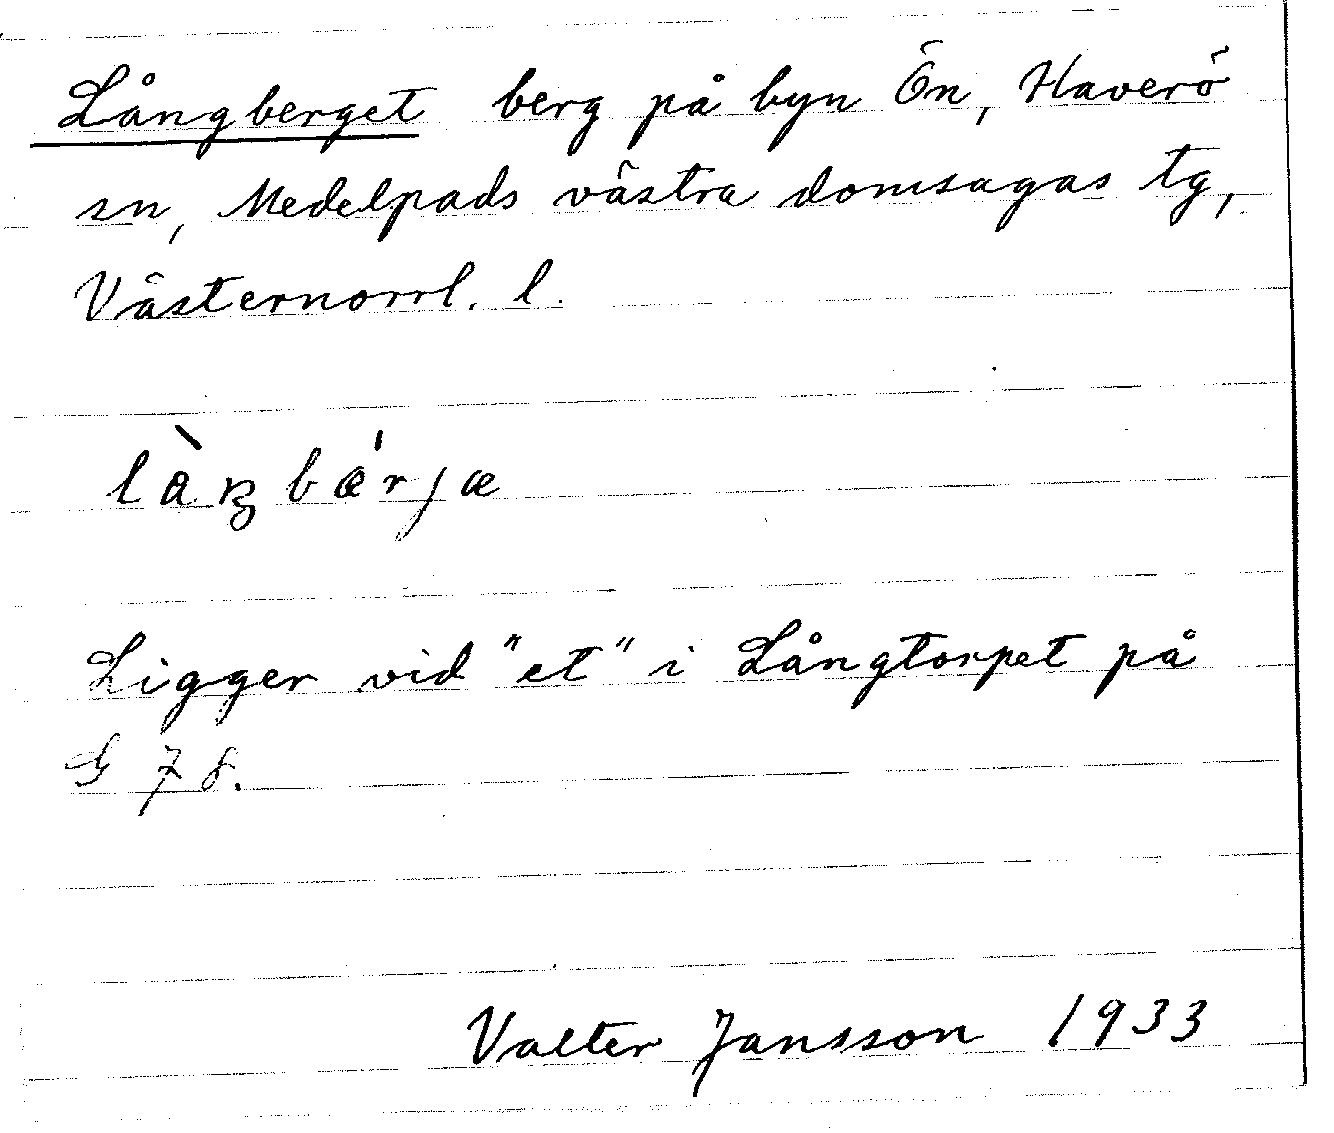 Långberget berg på byn Ön, Haverö
sn, Medelpads västra domsagas tg,
Västernorrl. l.
làŋbærjæ
Ligger vid "et" i Långtorpet på
G 78.
Valter Jansson 1933